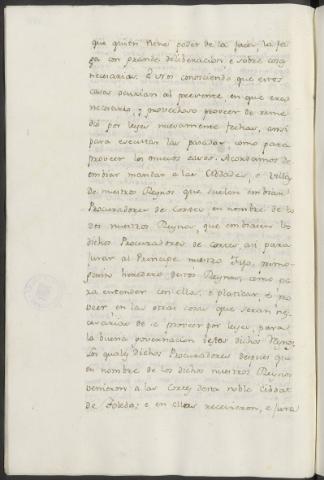 que quien tiene poder de la facer, la fa
ga con grande deliberacion, e sobre cosa
necesaria. E Nos conosciendo que estos
casos ocurrian al presente en que era
necesario, y provechoso proveer de reme
dio por leyes nuevamente fechas, ansi
para executar las pasadas, como para
proveer los nuevos casos. Acordamos de
embiar mandar a las Cibdades, e Villas
de nuestros Reynos que suelen embiar
Procuradores de Cortes en nombre de to
dos nuestros Reynos, que embiasen los
dichos Procuradores de Cortes, asi para
jurar al Principe nuestro Fijo, primo
genito heredero destos Reynos, como pa
ra entender con ellos, e platicar, e pro
veer en las otras cosas que serán ne
cesarias de se proveer por leyes, para
la buena governacion destos dichos Reynos.
Los quales dichos Procuradores despues que
en nombre de los dichos nuestros Reynos
venieron a las Cortes desta noble Cibdat
de Toledo, e en ellas recivieron, e jura